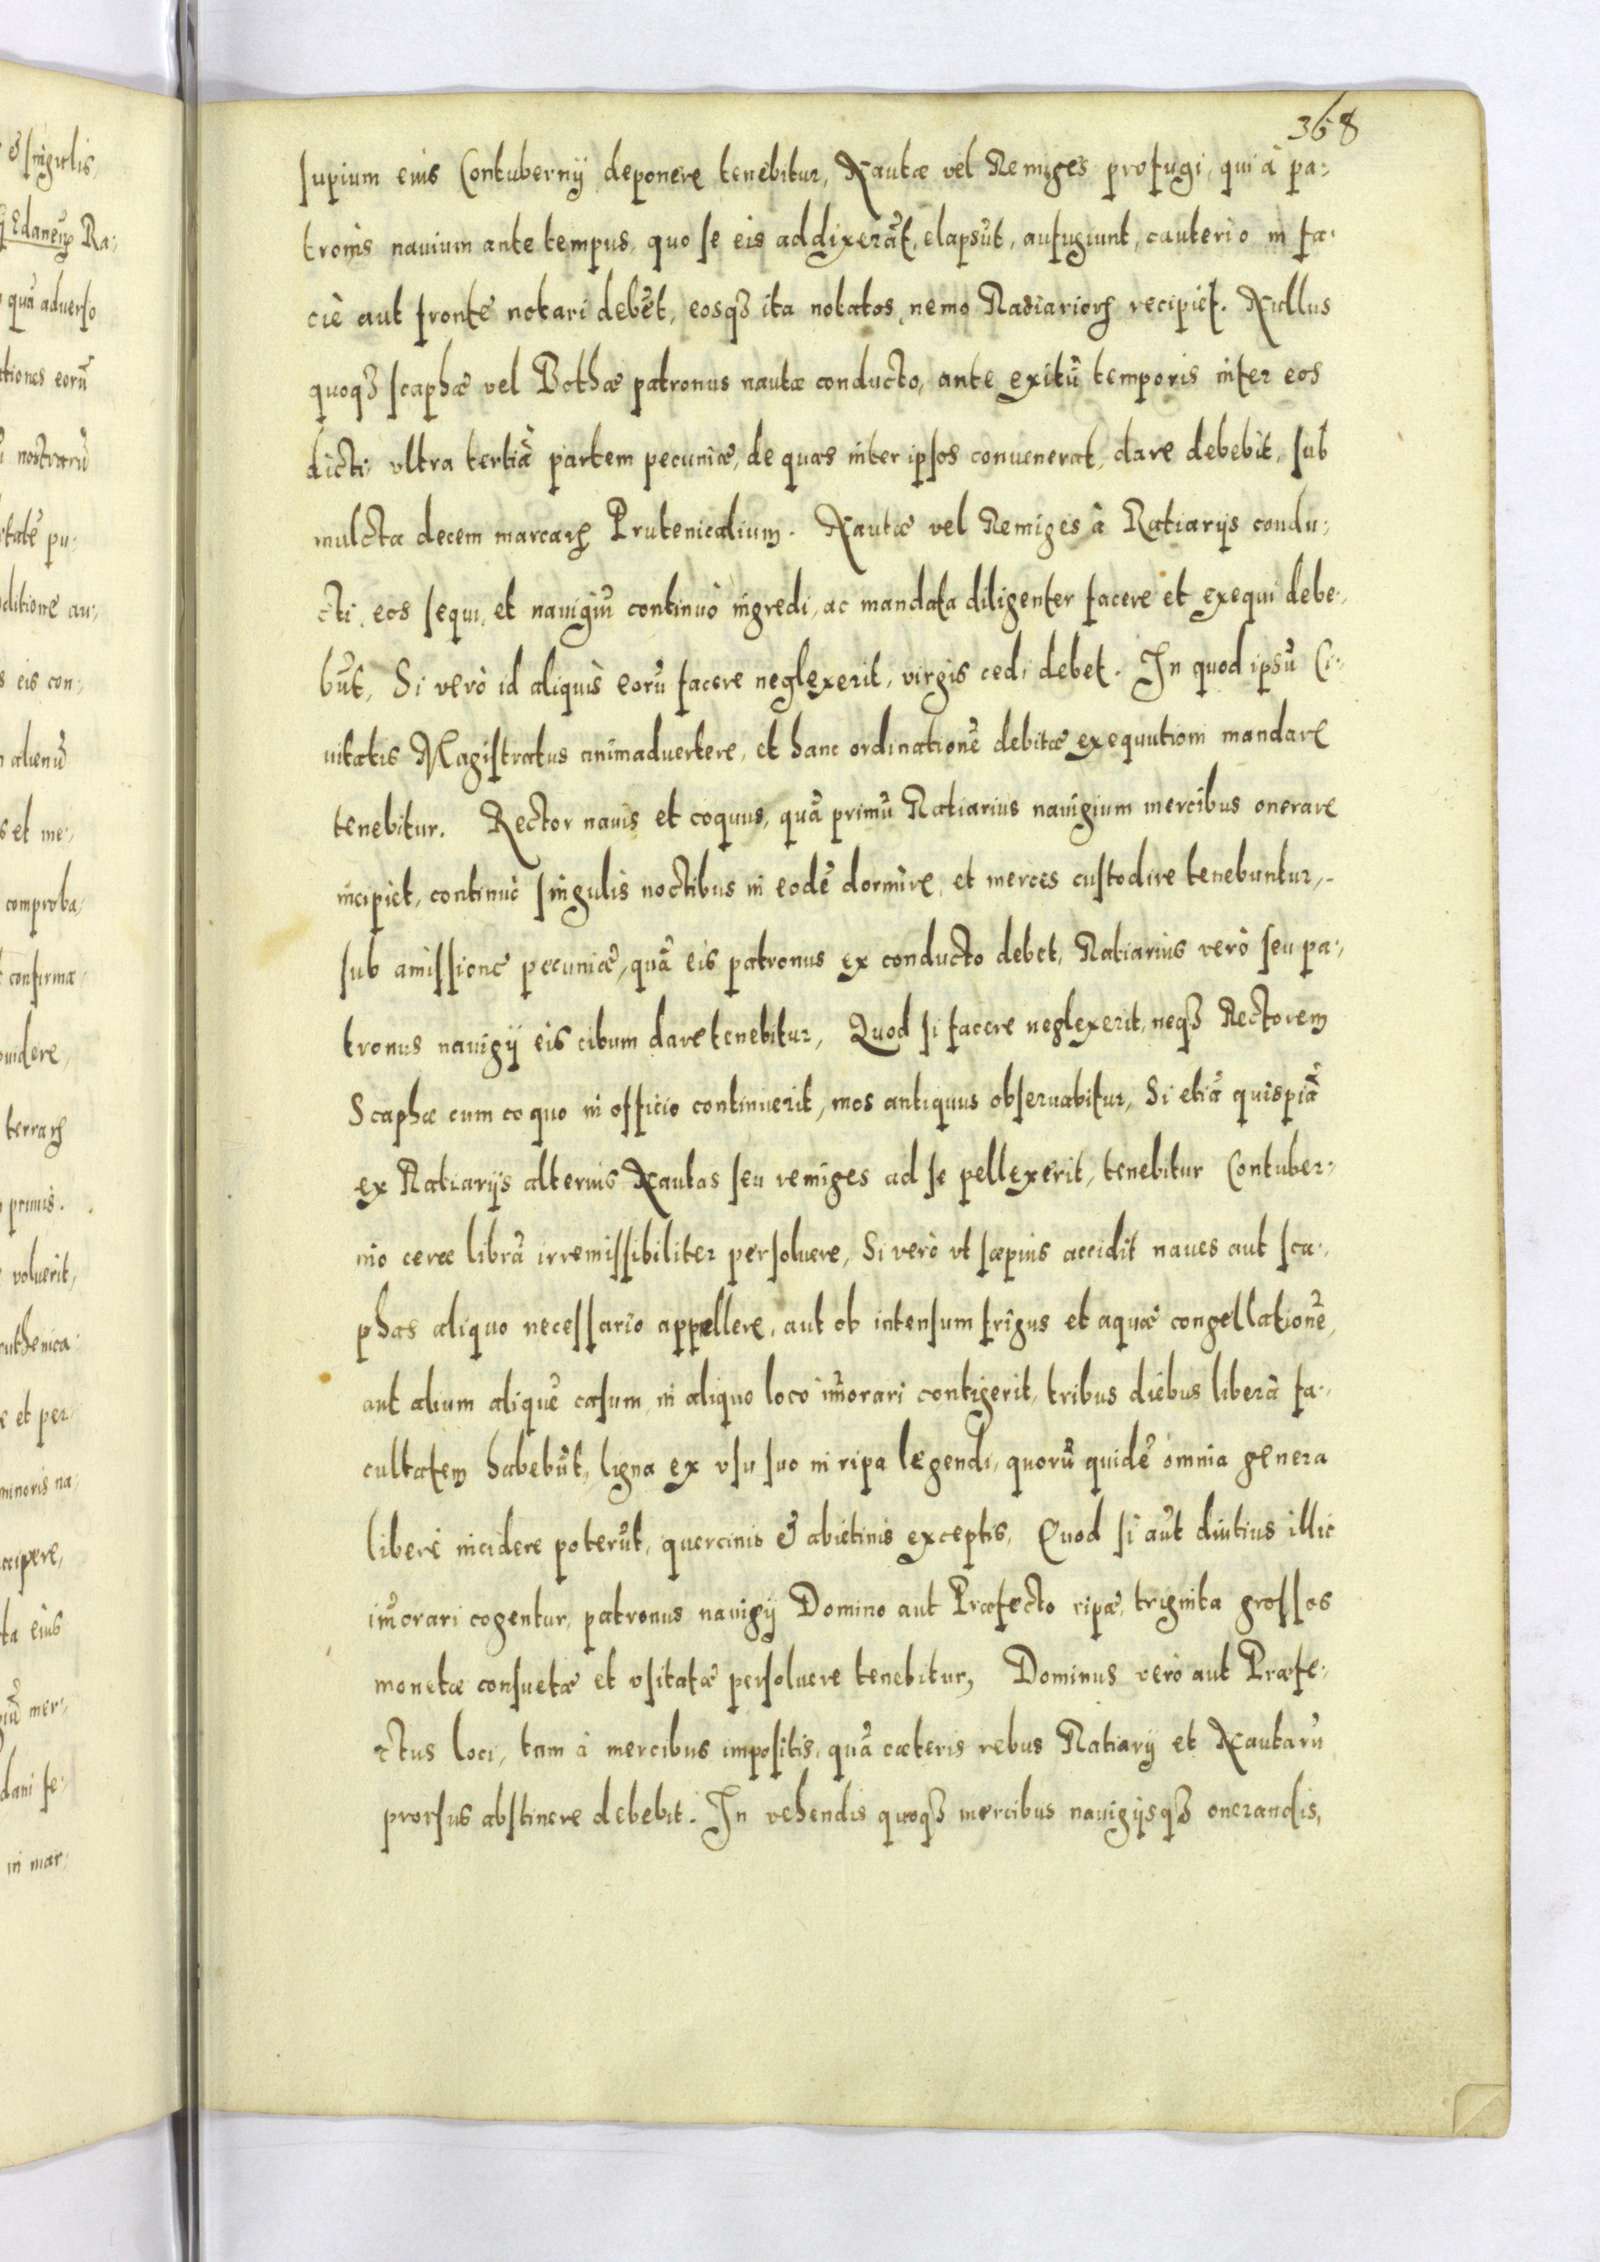 368
supium eius Contubernij deponere tenebitur, Nautæ vel Remiges profugi, qui à pa:
tronis nauium ante tempus, quo se eis addixerāt, elapsūt, aufugiunt, cauterio in fa:
ciē aut frontē notari debēt, eosqȝ ita notatos nemo Ratiarioꝝ recipiet. Nullus
quoqȝ scaphæ vel Bothæ patronus nautæ conducto, ante exitū temporis inter eos
dicti, vltra tertiā partem pecuniæ, de quas inter ipsos conuenerat, dare debebit, sub
mulcta decem marcaꝝ Prutenicalium. Nautæ vel Remiges à Ratiarijs condu:
cti, eos sequi, et nauigiū continuò ingredi, ac mandata diligenter facere et exequi debe:
būt, Si verò id aliquis eorū facere neglexerit, virgis cedi debet. In quod ipsū Ci:
uitatis Magistratus animaduertere, et hanc ordinationē debitæ exequutioni mandare
tenebitur. Rector nauis et coquus, quā primū Ratiarius nauigium mercibus onerare
incipiet, continuò singulis noctibus in eodē dormire, et merces custodire tenebuntur,
sub amissione pecuniæ, quā eis patronus ex conducto debet, Ratiarius verò seu pa:
tronus nauigij eis cibum dare tenebitur, Quod si facere neglexerit, neqȝ Rectorem
Scaphæ cum coquo in officio continuerit, mos antiquus obseruabitur, Si etiā quispiā
ex Ratiarijs alterius Nautas seu remiges ad se pellexerit, tenebitur Contuber:
nio ceræ librā irremissibiliter persoluere, Si verò vt sæpius accidit naues aut sca:
phas aliquo necessario appellere, aut ob intensum frigus et aquæ congellationē,
aut alium aliquē casum, in aliquo loco im̄orari contigerit, tribus diebus liberā fa:
cultatem habebūt, ligna ex vsu suo in ripa legendi, quorū quidē omnia genera
liberè incidere poterūt, quercinis & abietinis exceptis, Quod si aūt diutius illic
im̄orari cogentur, patronus nauigij Domino aut Præfecto ripæ, triginta grossos
monetæ consuetæ et vsitatæ persoluere tenebitur, Dominus verò aut Præfe:
ctus loci, tam à mercibus impositis, quā cæteris rebus Ratiarij et Nautarū
prorsus abstinere debebit. In vehendis quoqȝ mercibus nauigijsqȝ onerandis,